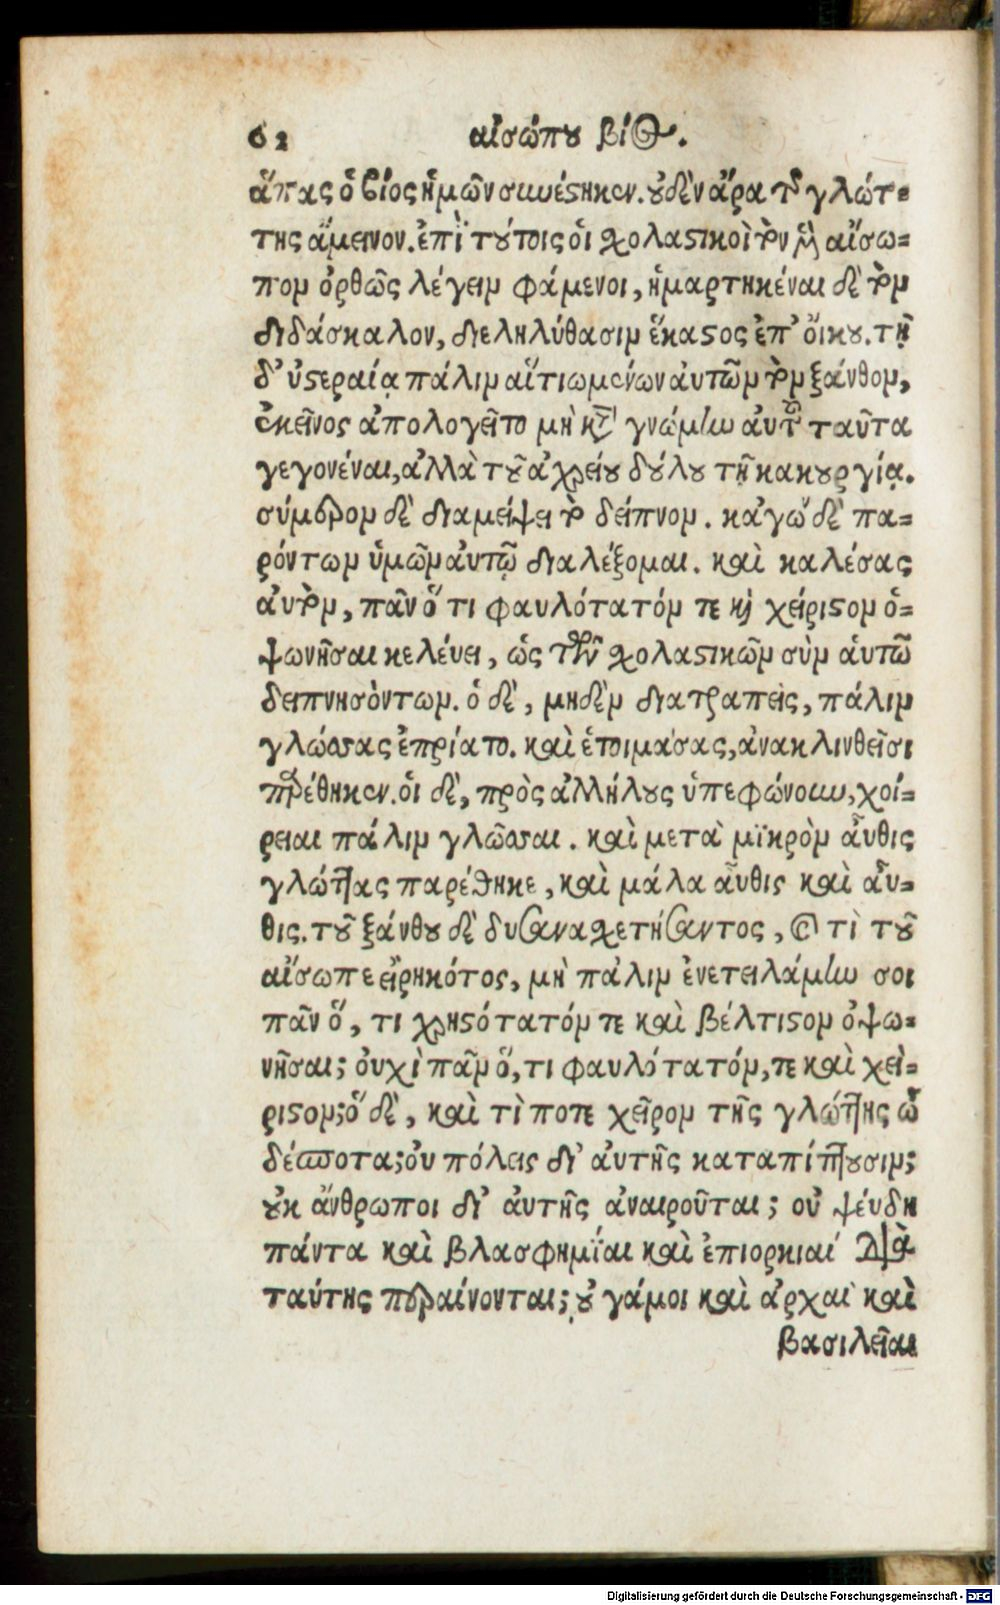 62 αἰσώπου βίος.
ἅπας ὁ βίος ἡμῶν συνέστηκεν. οὐδὲν ἄρα τῆς γλώτ-
της ἄμεινον. ἐπὶ τούτοις οἱ σχολαστικοὶ τὸν μὲν αἴσω-
πον ὀρθῶς λέγειν φάμενοι, ἡμαρτηκέναι δὲ τὸν
διδάσκαλον, διεληλύθασιν ἕκαστος ἐπ' οἴκου. τῇ
δ' ὑστεραίᾳ πάλιν αἰτιωμένων αὐτῶν τὸν ξάνθον,
ἐκεῖνος ἀπολογεῖτο μὴ κατὰ γνώμην αὐτοῦ ταῦτα
γεγονέναι, ἀλλὰ τοῦ ἀχρείου δούλου τῇ κακουργίᾳ.
σύμερον δὲ διαμείψει τὸ δεῖπνον. κἀγὼ δὲ πα-
ρόντων ὑμῶν αὐτῷ διαλέξομαι. καὶ καλέσας
αὐτὸν, πᾶν ὅ τι φαυλότατόν τε καὶ χείριστον ὀ-
ψωνῆσαι κελέυει, ὡς τῶν σχολαστικῶν σὺν ἁυτῶ
δειπνησόντων. ὁ δὲ, μηδὲν διατραπεὶς, πάλιν
γλώσσας ἐπρίατο. καὶ ἑτοιμάσας, ἀνακλινθεῖσι
παρέθηκεν. οἱ δὲ, πρὸς ἀλλήλους ὑπεφώνουν, χοί-
ρειαι πάλιν γλῶσσαι. καὶ μετὰ μϊκρὸν αὖθις
γλώττας παρέθηκε, καὶ μάλα αὖθις καὶ αὖ-
θις. τοῦ ξάνθου δὲ δυσανασχετήσαντος, καὶ τὶ τοῦ
αἴσωπε εἰρηκότος, μὴ πάλιν ἐνετειλάμην σοι
πᾶν ὅ, τι χρηστότατόν τε καὶ βέλτιστον ὀψω-
νῆσαι; οὐχὶ πᾶν ὅ, τι φαυλότατόν, τε καὶ χεὶ-
ριστον; ὁ δὲ, καὶ τὶ ποτε χεῖρον τῆς γλώττης ὦ
δέσποτα; οὐ πόλεις δι' αὐτῆς καταπίπτουσιν;
οὐκ ἄνθρωποι δι' ἀυτῆς ἀναιροῦται; οὐ ψέυδη
πάντα καὶ βλασφημΐαι καὶ ἐπιορκιαί διὰ
ταύτης περαίνονται; οὐ γάμοι καὶ ἀρχαὶ καὶ
βασιλεῖαι